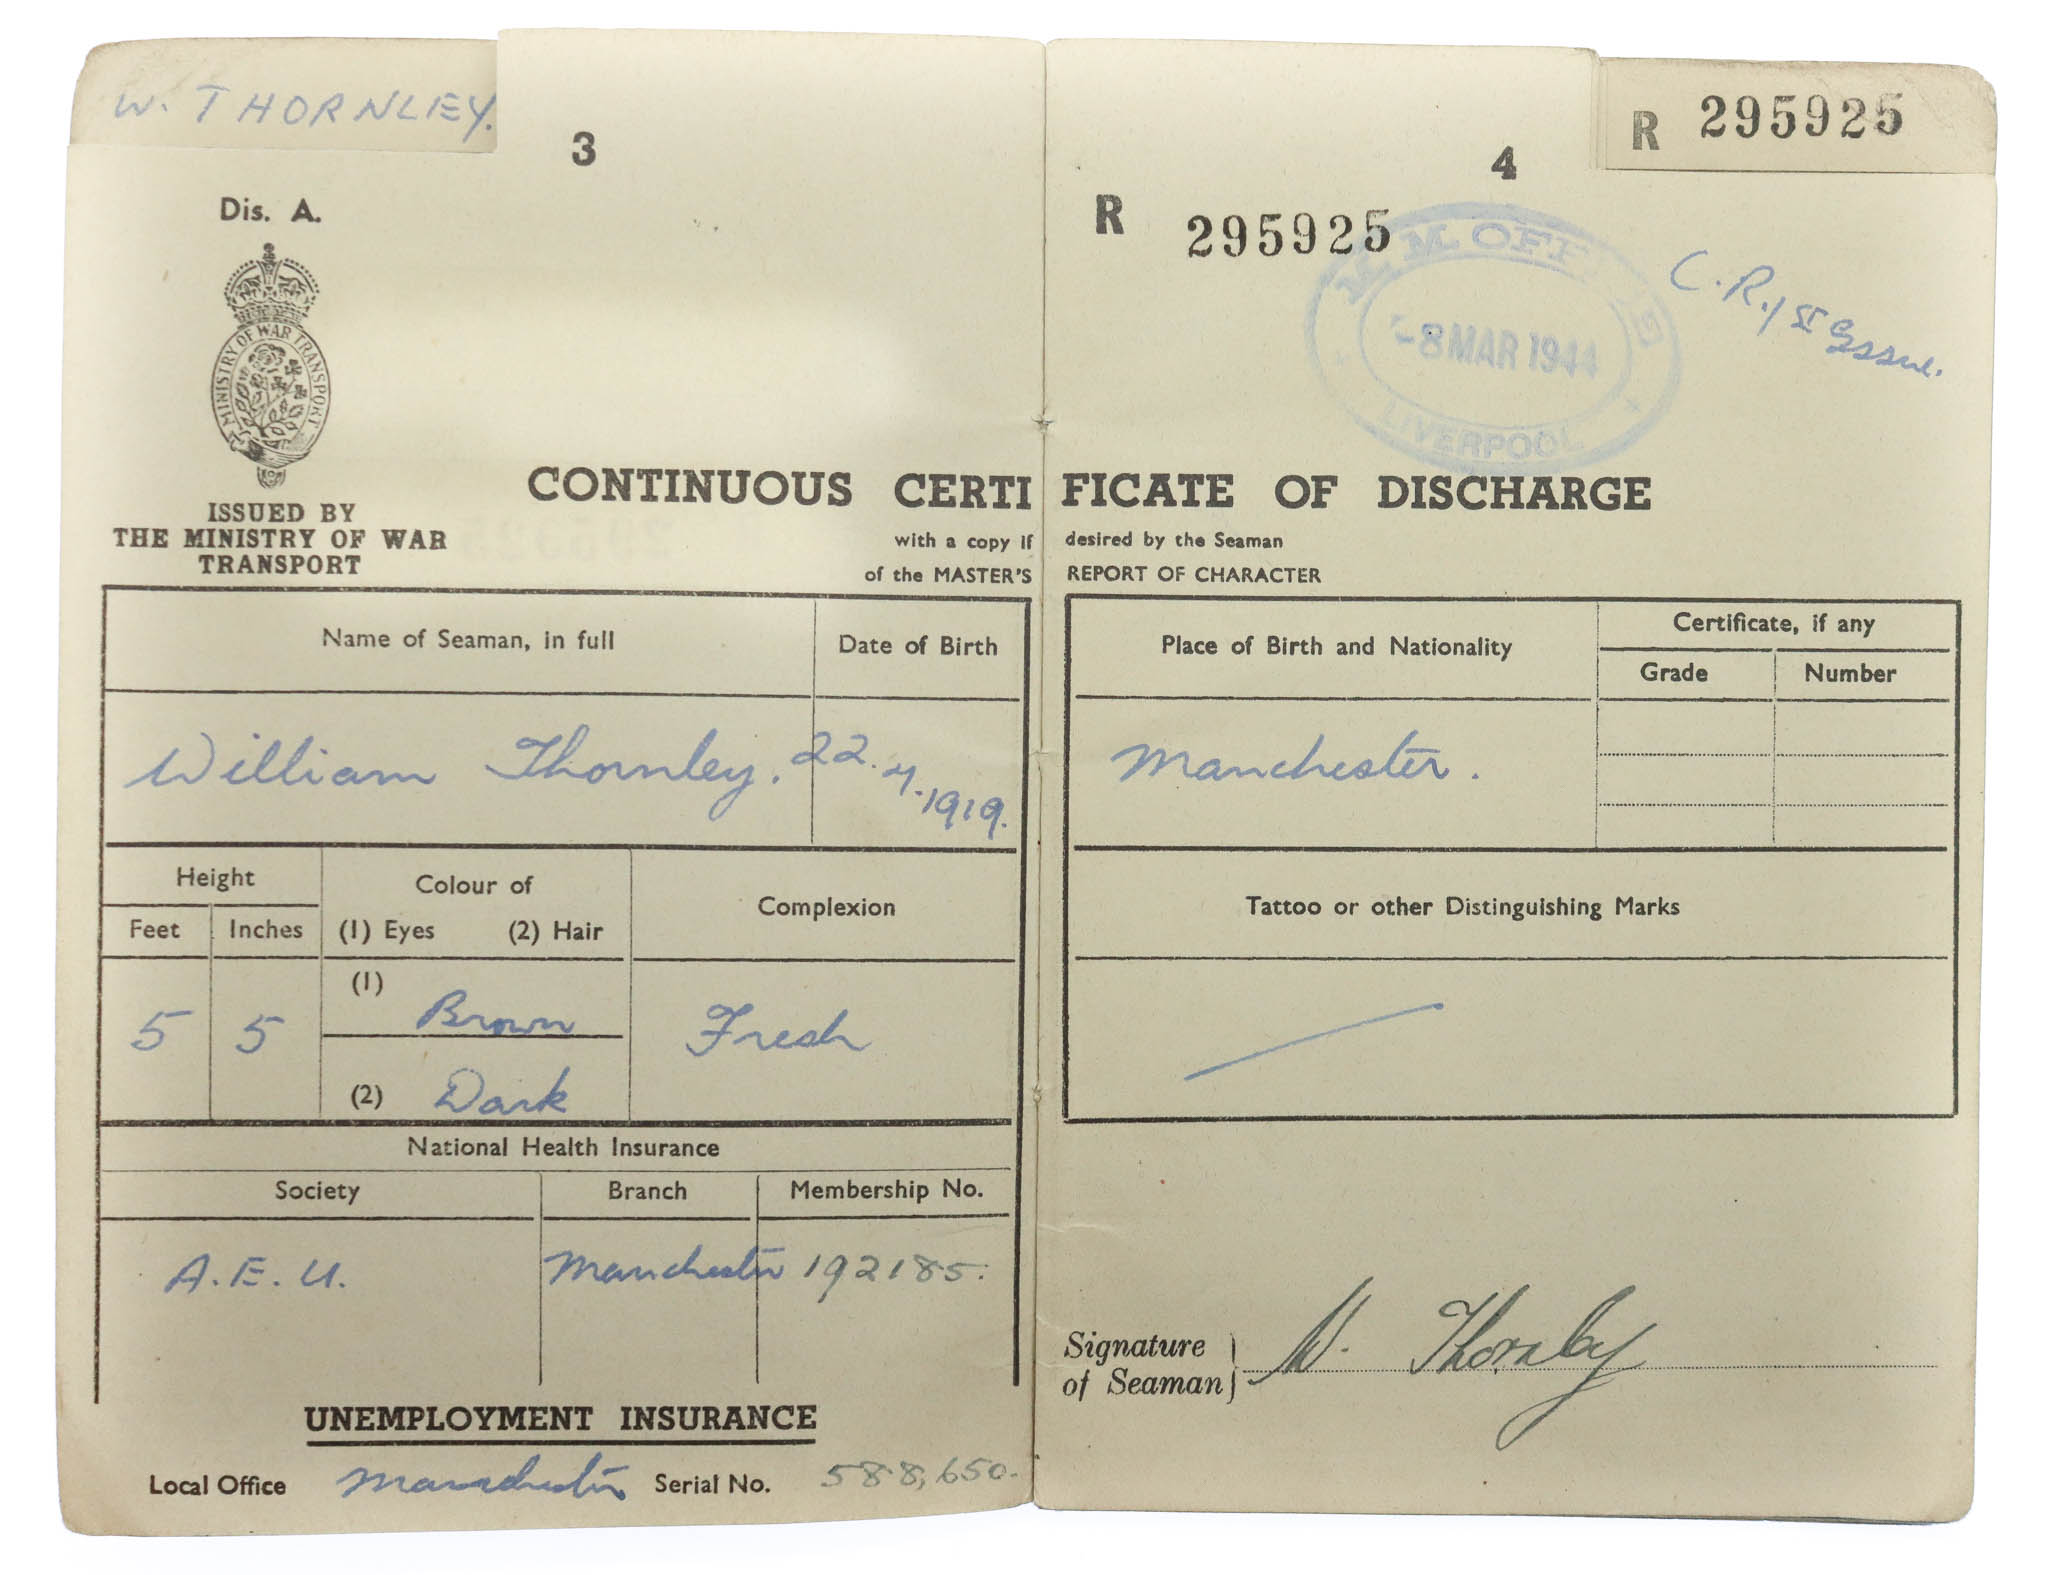 W. THORNLEY.
3
Dis. A.
MINISTRY OF WAR TRANSPORT
ISSUED BY
THE MINISTRY OF WAR
TRANSPORT
CONTINUOUS CERTI
with a copy if
of the MASTER'S
Name of Seaman, in full
Date of Birth
William Thornley. 22.4.1919.
Height
Colour of
Complexion
Feet Inches (1) Eyes (2) Hair
(1) Brown
5 5 Fresh
(2) Dark
National Health Insurance
Society Branch Membership No.
A.E.U. Manchester 192185.
UNEMPLOYMENT INSURANCE
Local Office Manchester Serial No. 588,650.
R 295925
4
R 295925
M.M. OFFICE
-8 MAR 1944
LIVERPOOL
C.R. 1st Issue.
FICATE OF DISCHARGE
desired by the Seaman
REPORT OF CHARACTER
Place of Birth and Nationality
Certificate, if any
Grade Number
Manchester.
Tattoo or other Distinguishing Marks
Signature
of Seaman
W. Thornley